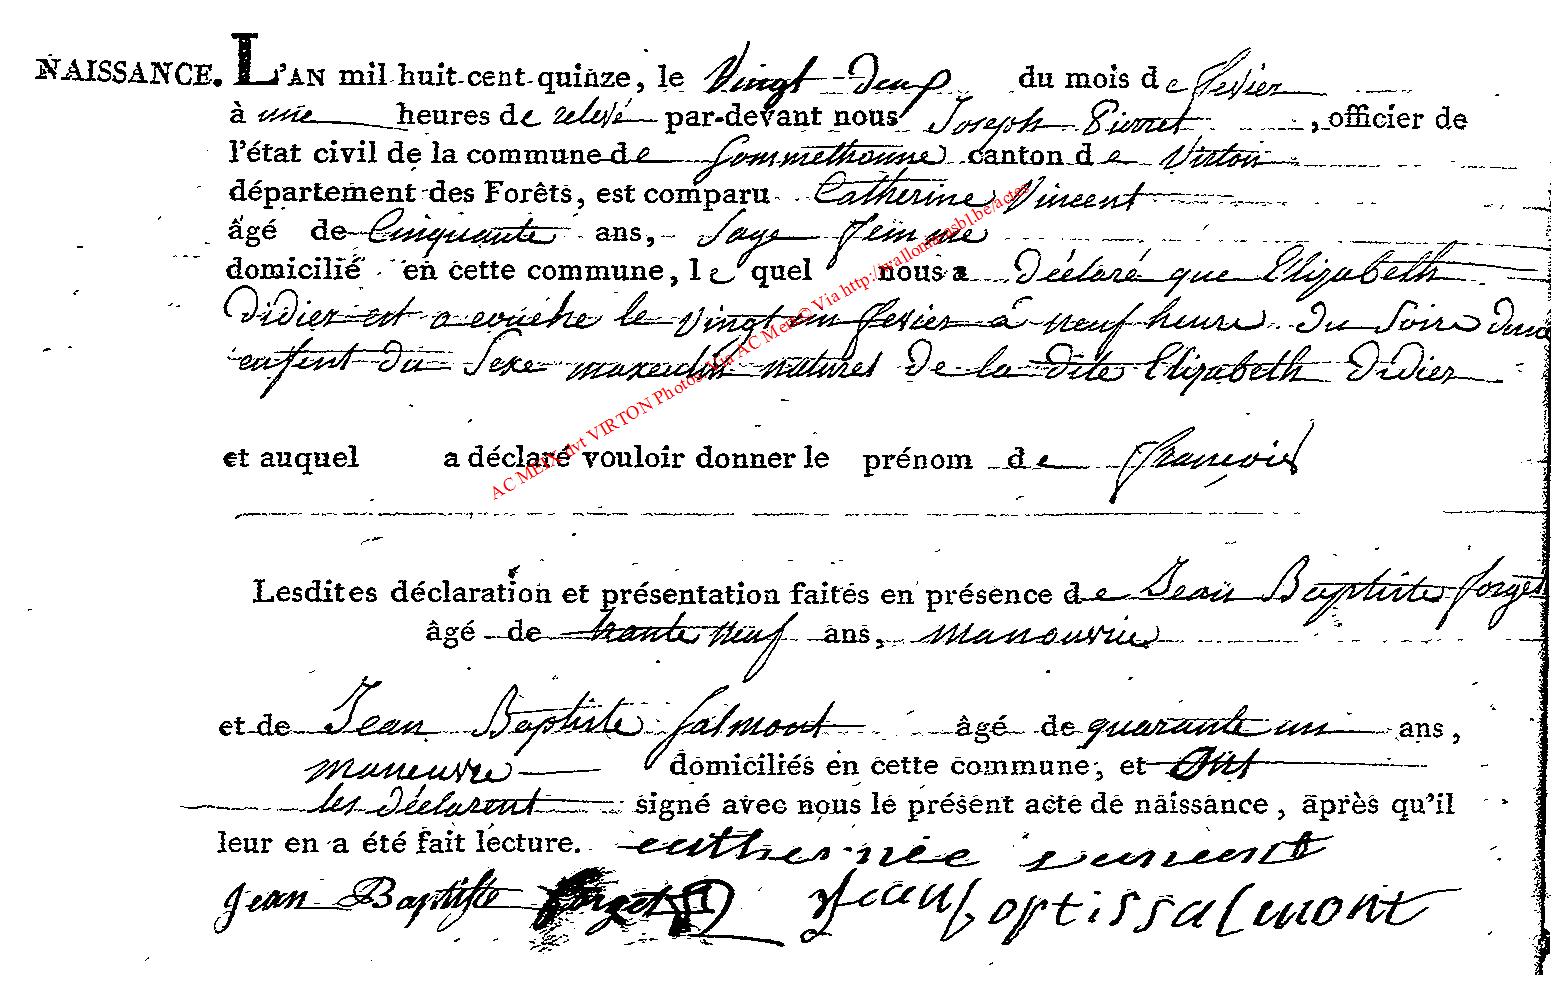 NAISSANCE. L'AN mil huit-cent-quinze, le Vingt deux du mois de fevier
à une heures de relevé par-devant nous Joseph Pierret, officier de
l'état civil de la commune de Sommethonne canton de Virton
département des Forêts, est comparu Catherine Vincent
âgé de Cinquante ans, Sage femme
domicilié en cette commune, le quel nous a déclaré que Elizabeth
Didier est acouché le vingt un fevier à neuf heure du Soire dun
enfent du Sexe maxculin naturel de la dite Elizabeth Didier
et auquel a déclaré vouloir donner le prénom de françois
Lesdites déclaration et présentation faites en présence de Jean Baptiste forget
âgé de trante neuf ans, manouvrie
et de Jean Baptiste Salmont âgé de quarante un ans,
maneuvre domiciliés en cette commune, et Ont
les déclarent signé avec nous le présent acte de naissance, après qu'il
leur en a été fait lecture. catherine
Jean Baptiste forget Jean optis salmont
AC MEIX dvt VIRTON Photos via AC Meix © Via http://wallonica.be/actes